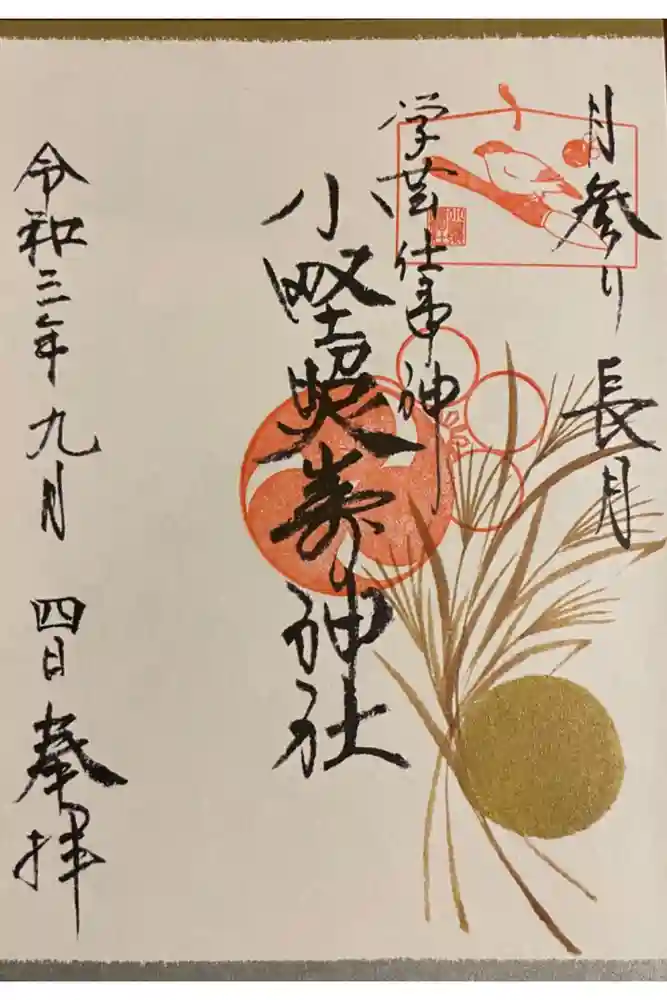 月参り 長月
学芸 仕事 神
小野照崎神社
令和三年 九月 四日 奉拝